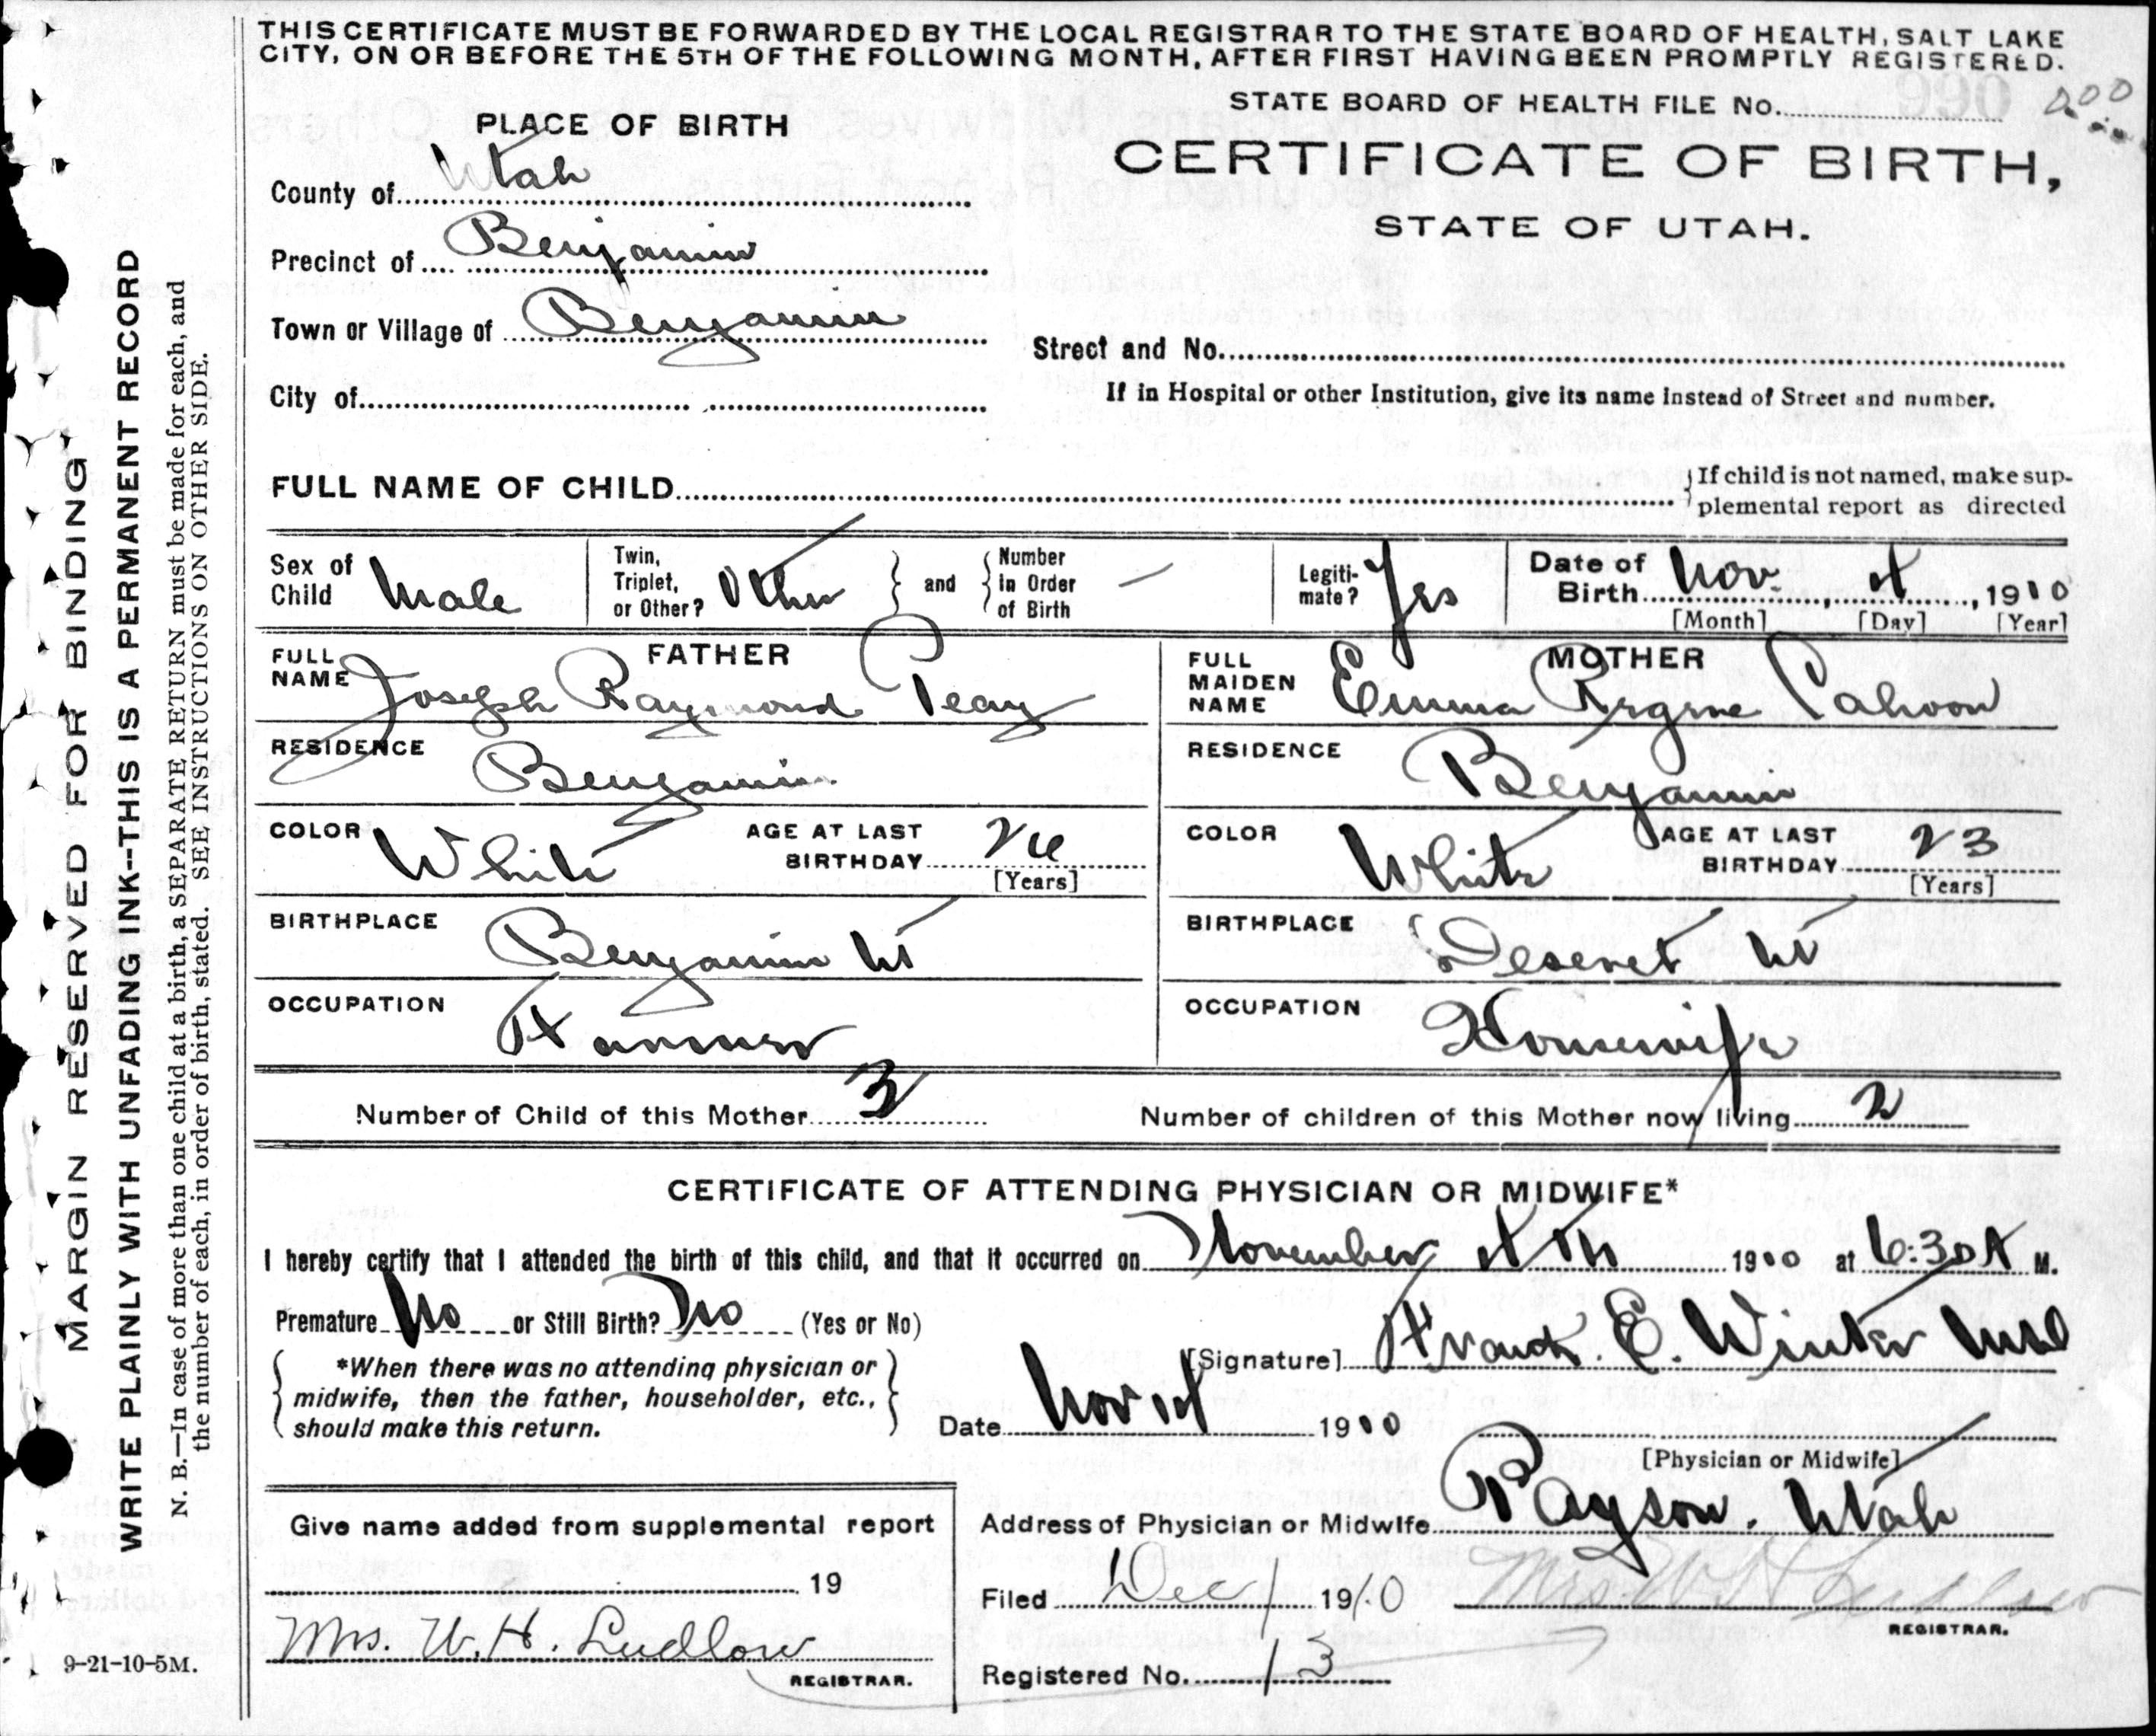 THIS CERTIFICATE MUST BE FORWARDED BY THE LOCAL REGISTRAR TO THE STATE BOARD OF HEALTH, SALT LAKE
CITY, ON OR BEFORE THE 5TH OF THE FOLLOWING MONTH, AFTER FIRST HAVING BEEN PROMPTLY REGISTERED.
STATE BOARD OF HEALTH FILE No.
PLACE OF BIRTH
CERTIFICATE OF BIRTH,
STATE OF UTAH.
County of Utah
Precinct of Benjamin
Town or Village of Benjamin
Street and No.
City of
If in Hospital or other Institution, give its name instead of Street and number.
FULL NAME OF CHILD
If child is not named, make sup-
plemental report as directed
Sex of Child Male
Twin, Triplet, or Other? Other
and
Number in Order of Birth —
Legiti-mate? Yes
Date of Birth Nov. , 1910
[Month] [Day] [Year]
FATHER
FULL NAME Joseph Raymond Peay
RESIDENCE Benjamin
COLOR White
AGE AT LAST BIRTHDAY 26
[Years]
BIRTHPLACE Benjamin Ut
OCCUPATION Farmer
MOTHER
FULL MAIDEN NAME Emma Cahoon
RESIDENCE Benjamin
COLOR White
AGE AT LAST BIRTHDAY 23
[Years]
BIRTHPLACE Deseret Ut
OCCUPATION Housewife
Number of Child of this Mother 3
Number of children of this Mother now living 2
CERTIFICATE OF ATTENDING PHYSICIAN OR MIDWIFE*
I hereby certify that I attended the birth of this child, and that it occurred on November 1910 at 6:30 A M.
Premature No or Still Birth? No (Yes or No)
*When there was no attending physician or
midwife, then the father, householder, etc.,
should make this return.
[Signature] Frank. E. Winter MD
Date Nov 1910
[Physician or Midwife]
Address of Physician or Midwife Payson. Utah
Give name added from supplemental report
19
Mrs. W. H. Ludlow
REGISTRAR.
Filed Dec 1 1910
Mrs W H Ludlow
REGISTRAR.
Registered No. 13
9-21-10-5M.
MARGIN RESERVED FOR BINDING
WRITE PLAINLY WITH UNFADING INK--THIS IS A PERMANENT RECORD
N. B.—In case of more than one child at a birth, a SEPARATE RETURN must be made for each, and
the number of each, in order of birth, stated. SEE INSTRUCTIONS ON OTHER SIDE.